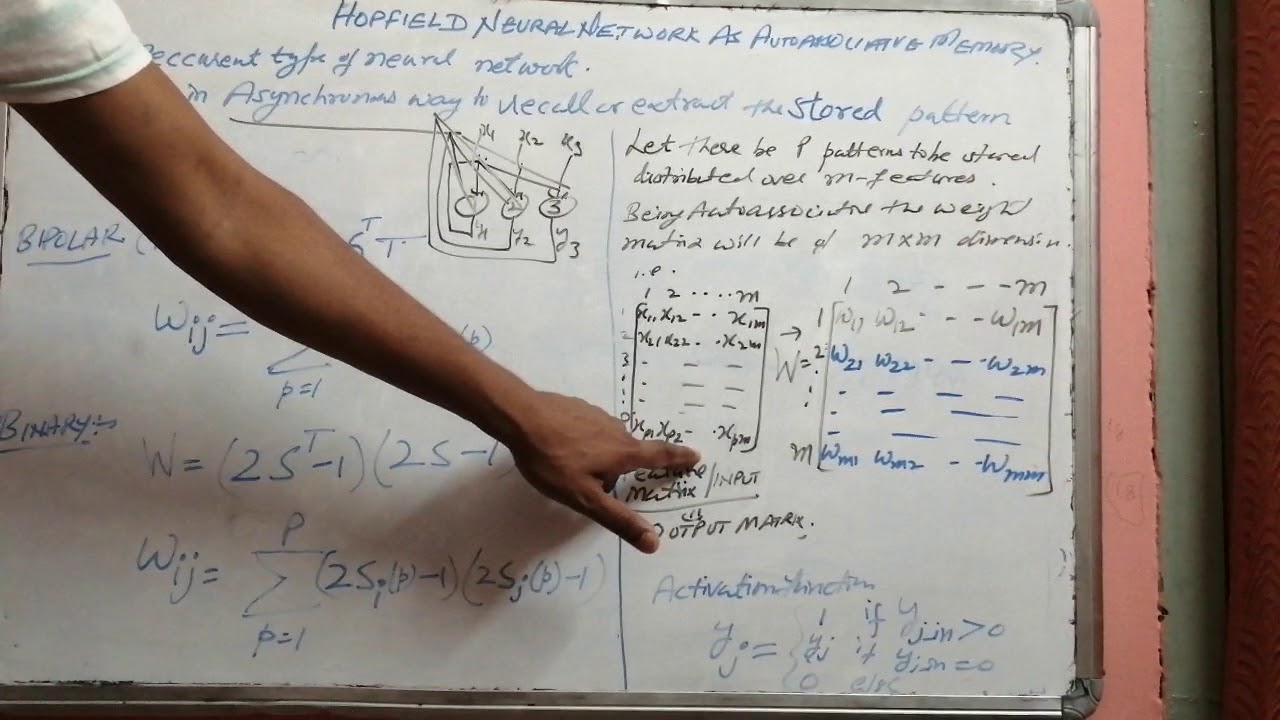 HOPFIELD NEURAL NETWORK AS AUTOASSOCIATIVE MEMORY.
eccurent type of neural network.
in Asynchronous way to recall or extract the stored pattern
x1 x2 x3
3
y1 y2 y3
BIPOLAR (
S^T T
Wij =
Σ
p=1
(p)
BINARY:-
W = (2S^T-1)(2S-1
P
Wij = Σ (2Si(p)-1)(2Sj(p)-1)
p=1
Let there be P patterns to be stored
distributed over m-features.
Being Autoassociative the weight
matrix will be of m×m dimension.
i.e.
1 2 .... m
x11 x12 - . x1m
x21 x22 . . x2m
3 - - -
- - -
- - -
xp1 xp2 - . xpm
Matrix / INPUT
OUTPUT MATRIX.
→
1 2 - - - m
W =
1 w11 w12 - - - w1m
2 w21 w22 - - - w2m
- - - -
- - -
m wm1 wm2 - - wmm
Activation function
yj = { 1 if yjin > 0
yj if yjin = 0
0 else